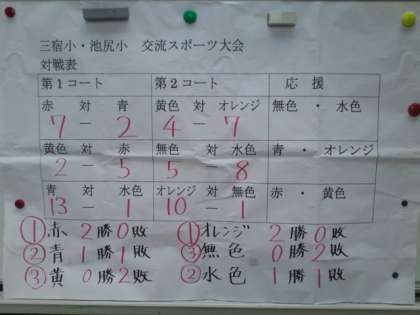 三宿小・池尻小 交流スポーツ大会
対戦表
第1コート 第2コート 応 援
赤 対 青 黄色 対 オレンジ 無色 ・ 水色
7 － 2 4 － 7
黄色 対 赤 無色 対 水色 青 ・ オレンジ
2 － 5 5 － 8
青 対 水色 オレンジ 対 無色 赤 ・ 黄色
13 － 1 10 － 1
① 赤 2勝0敗 ① オレンジ 2勝0敗
② 青 1勝1敗 ③ 無色 0勝2敗
③ 黄 0勝2敗 ② 水色 1勝1敗